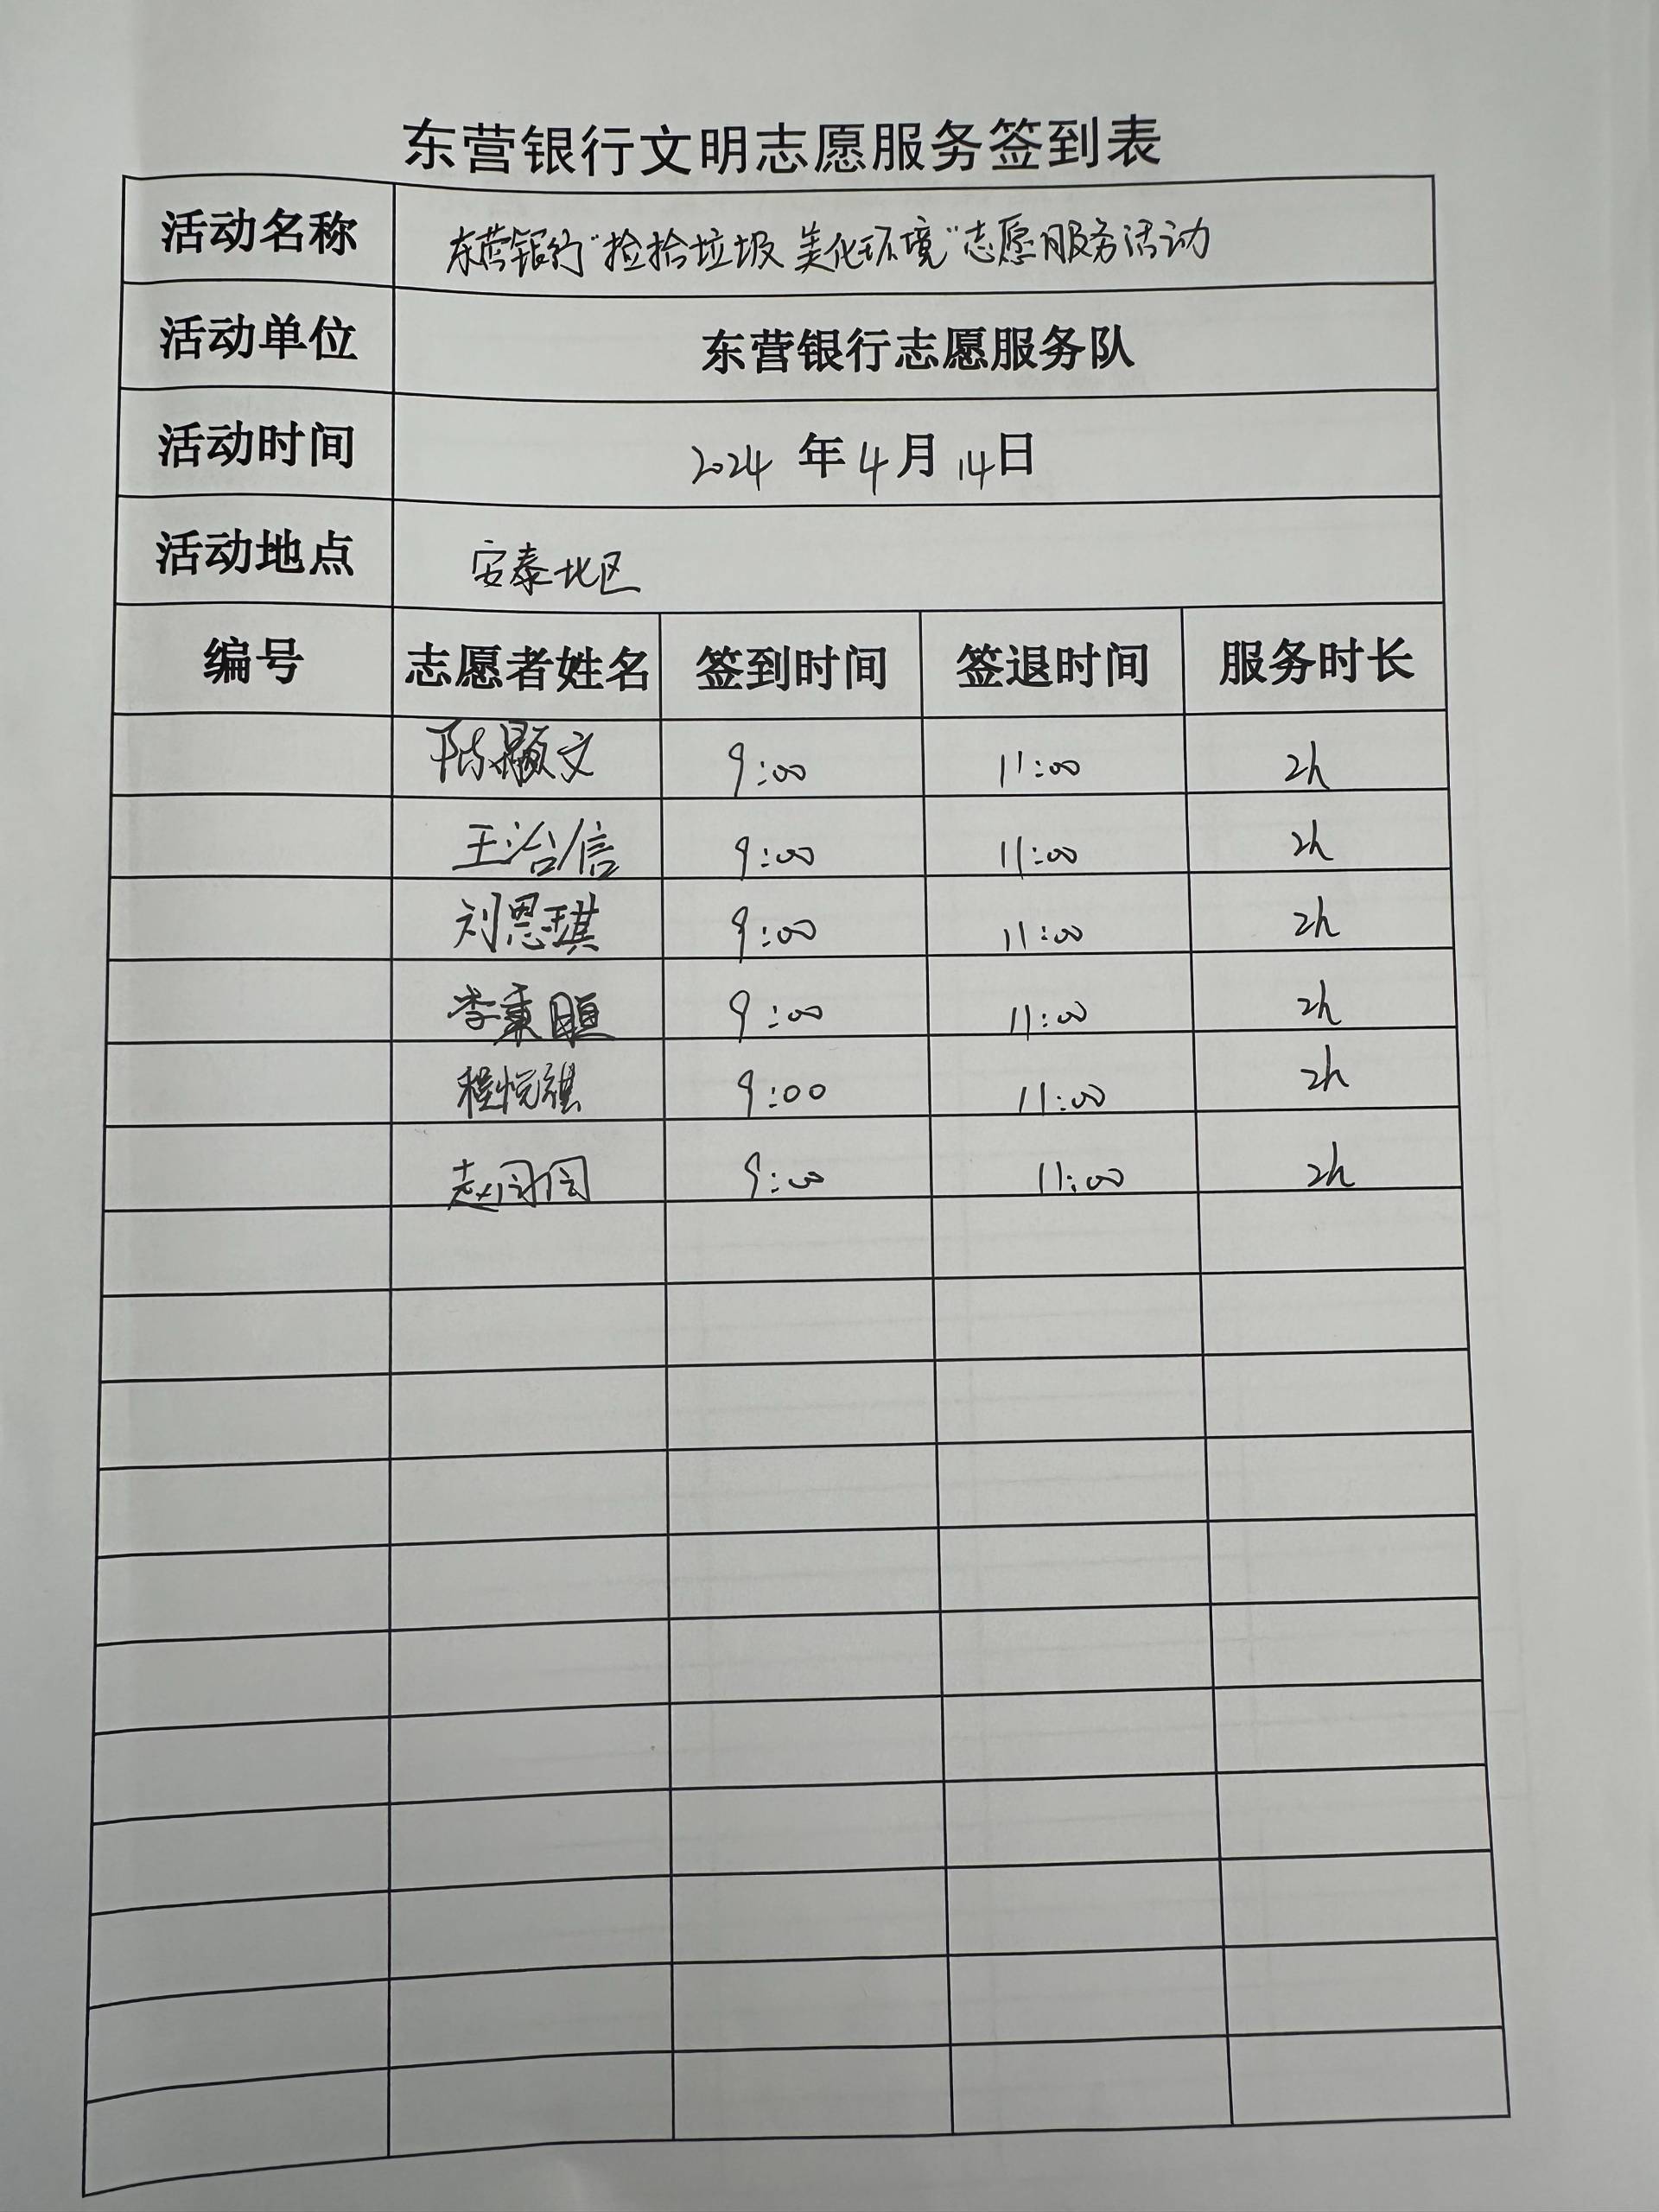 东营银行文明志愿服务签到表
活动名称 东营银行“捡拾垃圾 美化环境”志愿服务活动
活动单位 东营银行志愿服务队
活动时间 2024 年 4 月 14 日
活动地点 安泰北区
编号 志愿者姓名 签到时间 签退时间 服务时长
陈灏文 9:00 11:00 2h
王治信 9:00 11:00 2h
刘恩琪 9:00 11:00 2h
李秉 9:00 11:00 2h
程悦祺 9:00 11:00 2h
赵闫闫 9:00 11:00 2h